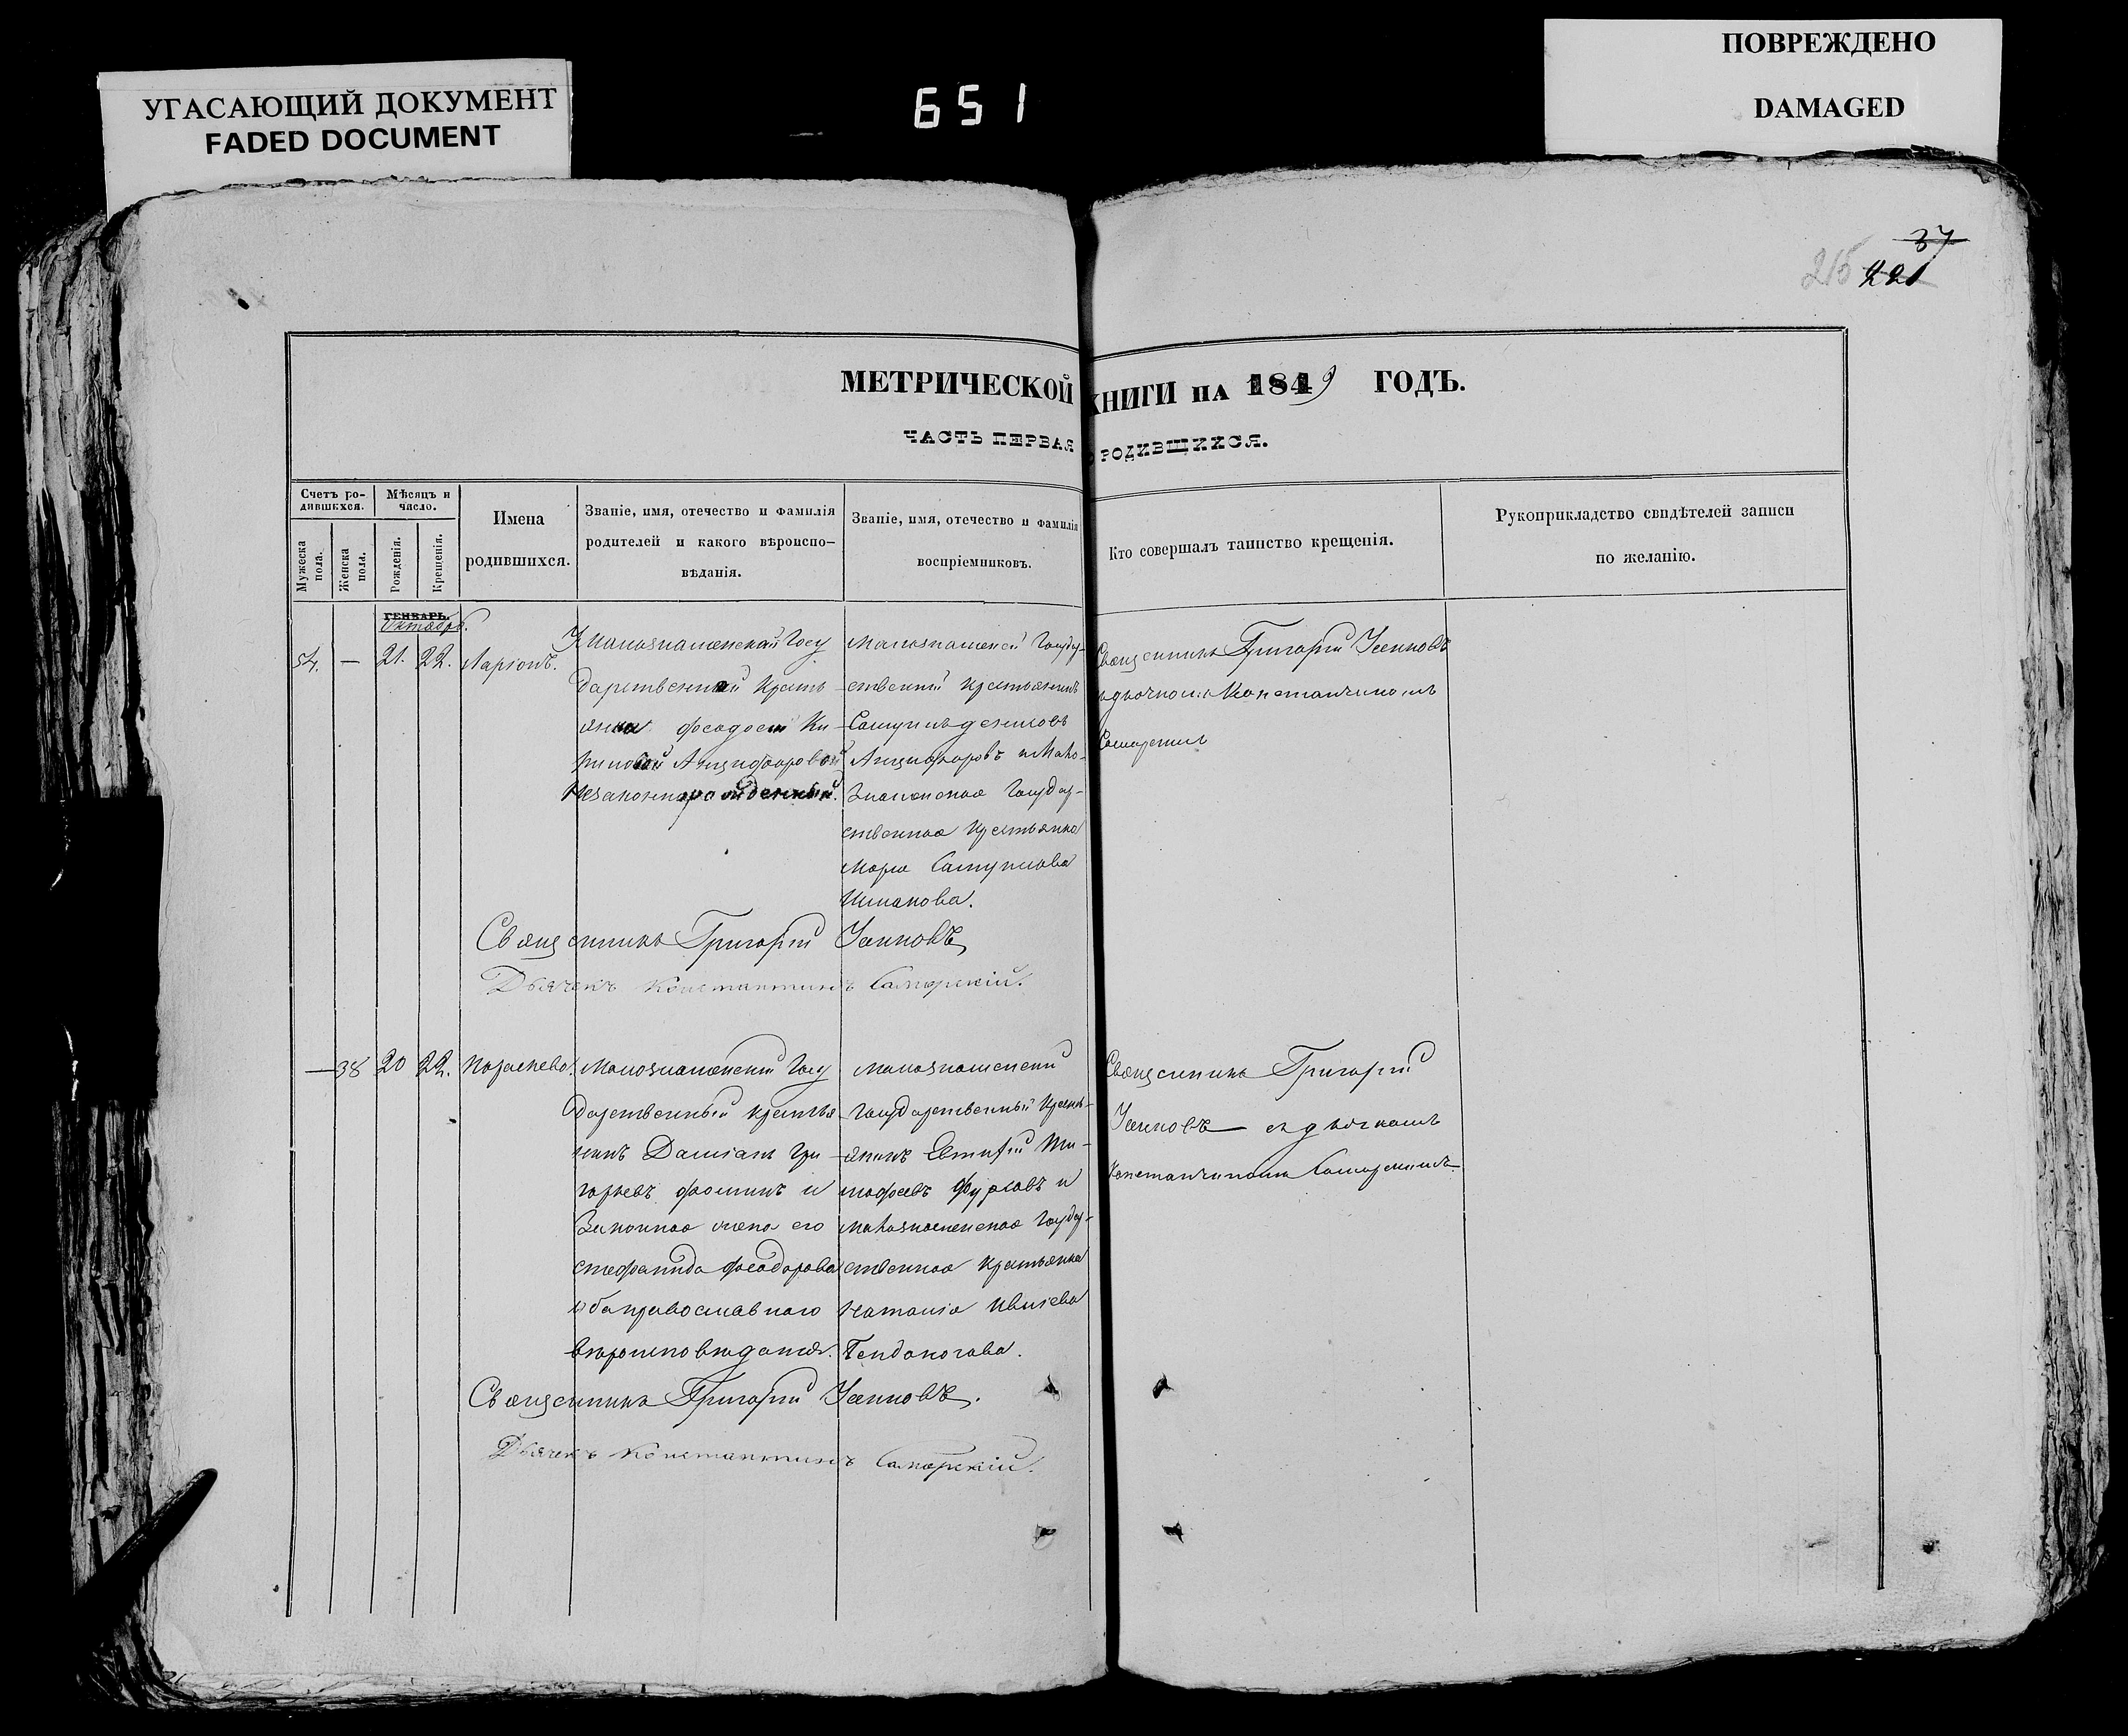 УГАСАЮЩИЙ ДОКУМЕНТ
FADED DOCUMENT
651
ПОВРЕЖДЕНО
DAMAGED
37
215 221
МЕТРИЧЕСКОЙ КНИГИ НА 1849 ГОДЪ.
ЧАСТЬ ПЕРВАЯ О РОДИВШИХСЯ.
Счетъ родившихся.
Мужеска пола.
Женска пола.
Мѣсяцъ и число.
Рожденія.
Крещенія.
Имена
родившихся.
Званіе, имя, отечество и фамилія
родителей и какого вѣроиспо-
вѣданія.
Званіе, имя, отечество и фамилія
воспріемниковъ.
Кто совершалъ таинство крещенія.
Рукоприкладство свидѣтелей записи
по желанію.
ГЕНВАРЬ.
Октябрь.
54. — 21. 22. Ларіонъ.
У Малознаменской Госу
дарственной Кресть
янки Феодосіи Ки
риловой Анциферовой
Незаконнорожденный.
Малознаменскій Государ-
ственный Крестьянинъ
Анциферовъ и Мало-
знаменская Государ-
ственная Крестьянка
Марія Самуилова
Священникъ Григорій
съ дьячкомъ Константиномъ
Самарскимъ
Священникъ Григорій
Дьячекъ Константинъ Самарскій.
— 38 20 22. Параскева.
Малознаменскій Госу
дарственный крестья
нинъ Даміанъ Гри
горьевъ Фоминъ и
Законная жена его
Стефанида Феодорова
оба православнаго
вѣроисповѣданія.
Малознаменскій
Государственный Кресть-
янинъ Евтифій Ти-
мофеевъ и
Малознаменская Государ-
ственная Крестьянка
Наталія
Священникъ Григорій
съ дьячкомъ
Константиномъ Самарскимъ
Священникъ Григорій
Дьячекъ Константинъ Самарскій.